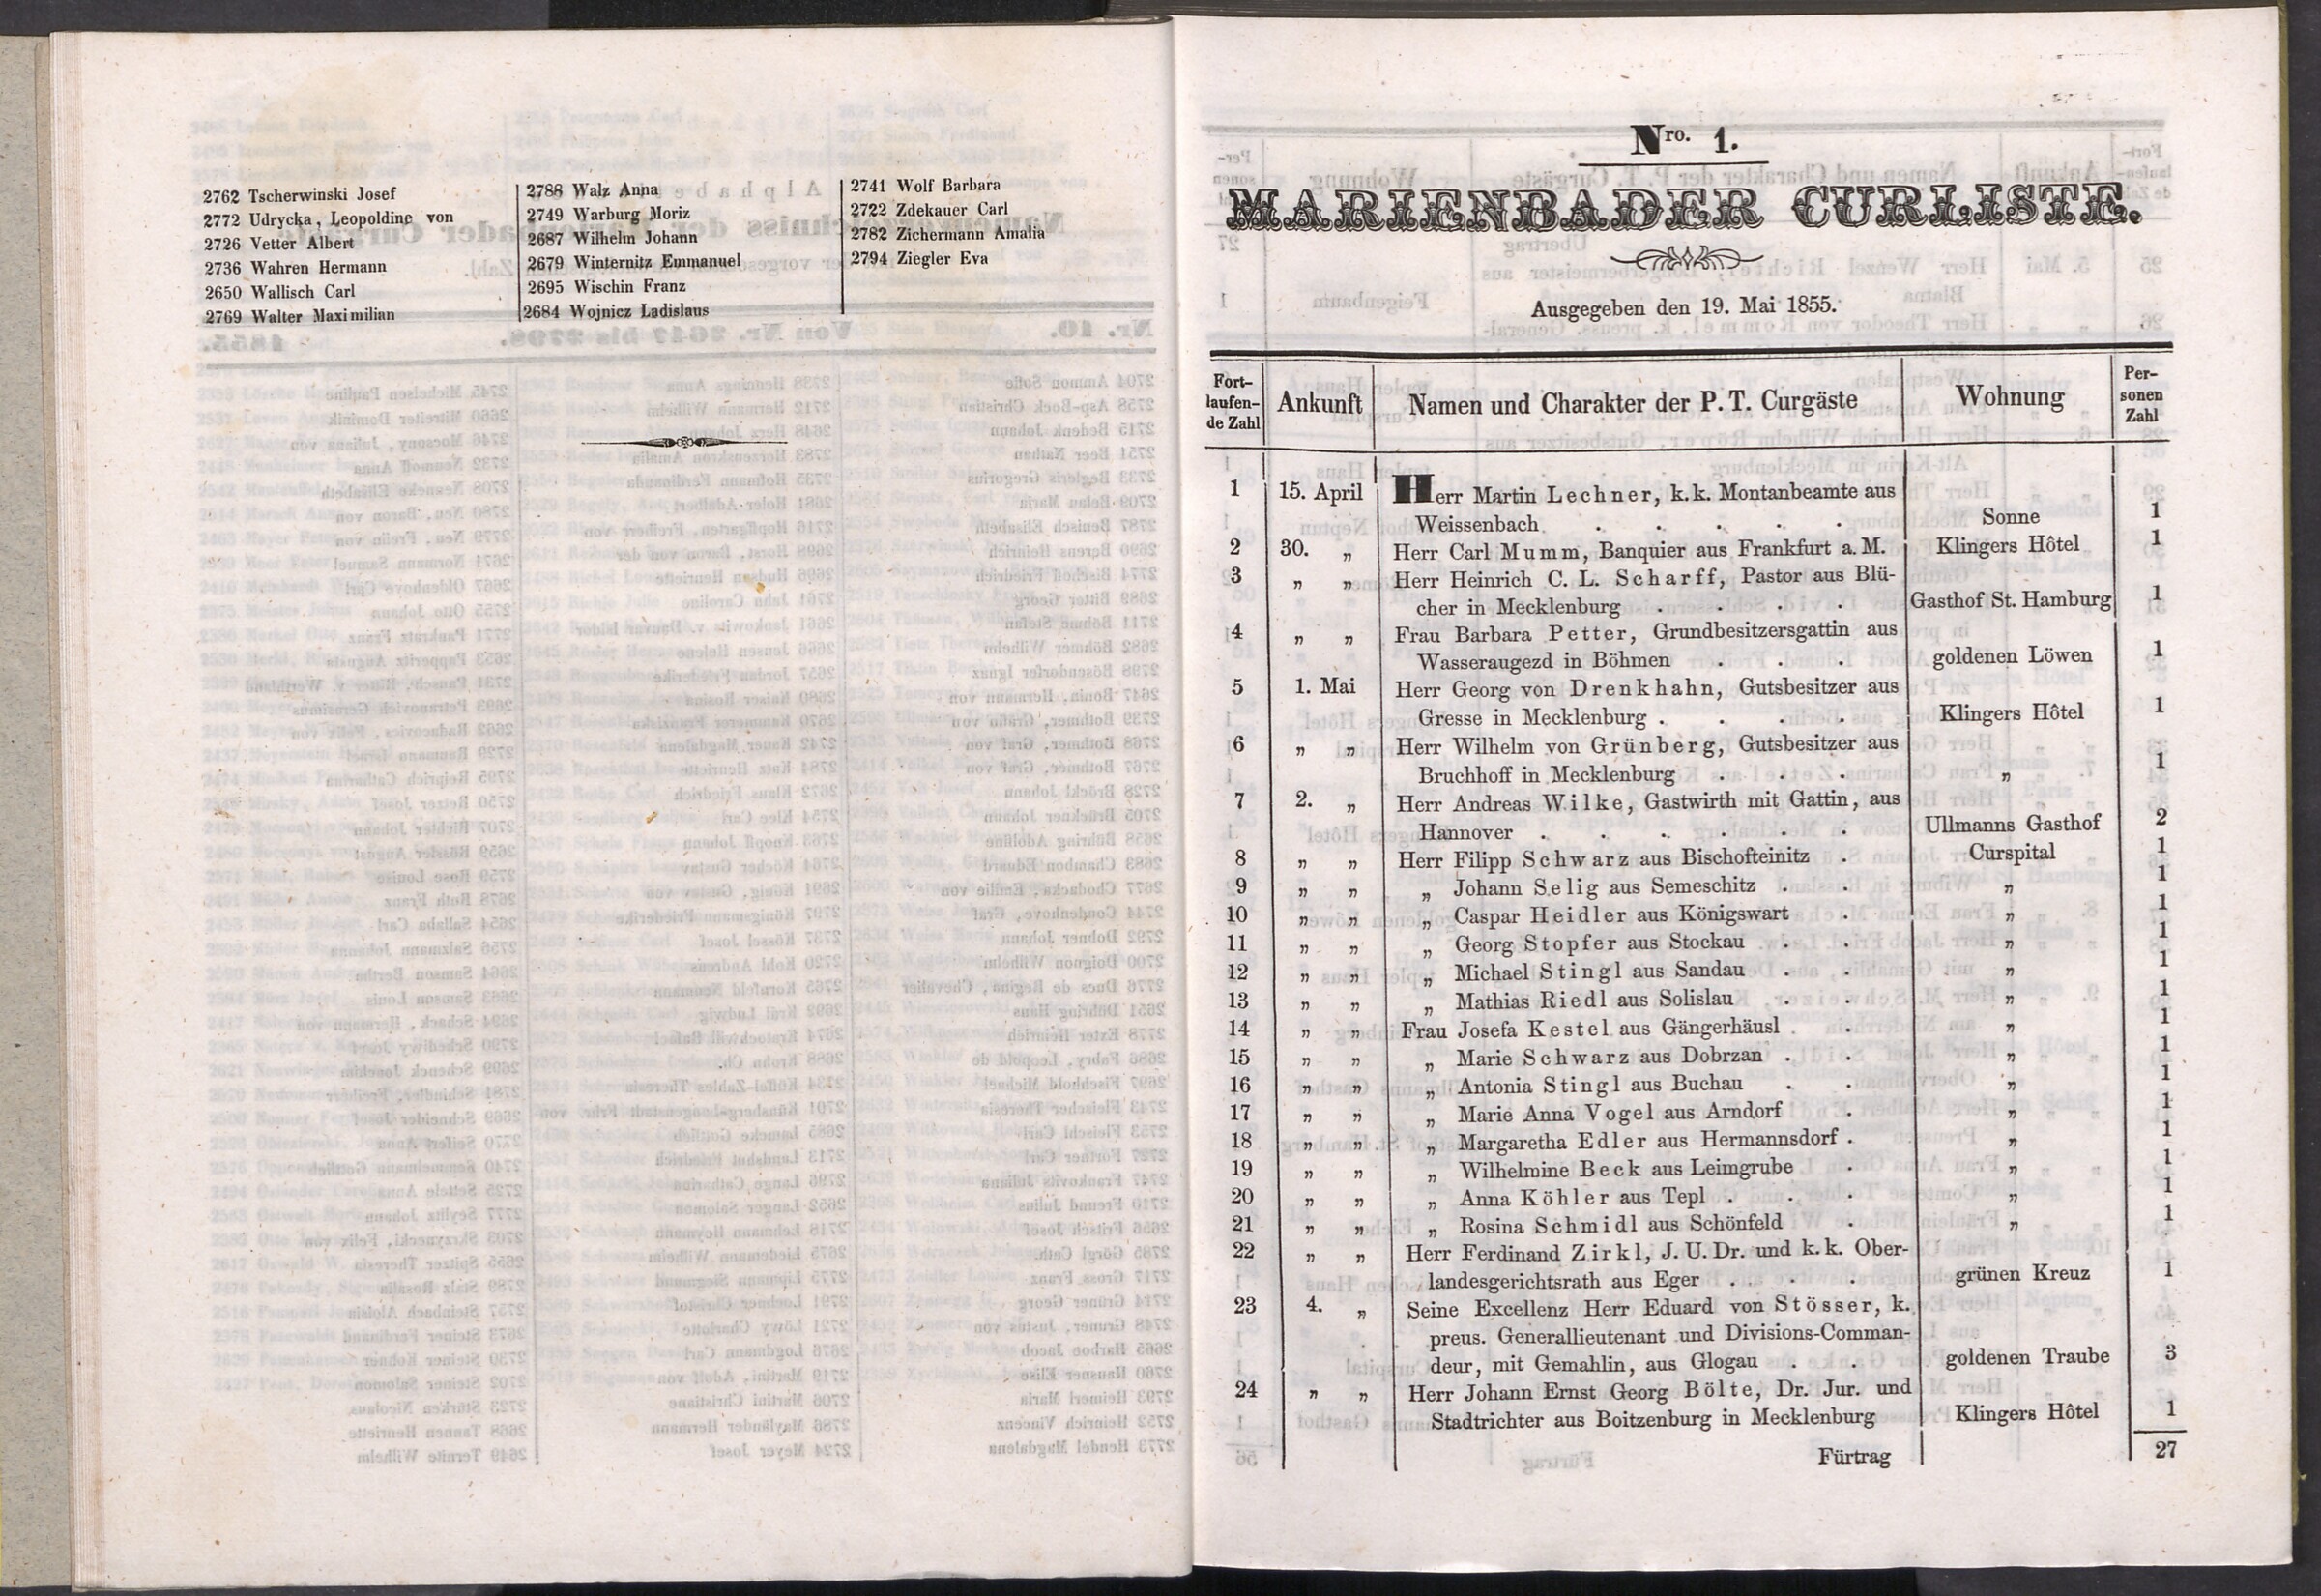 2762 Tscherwinski Josef
2772 Udrycka, Leopoldine von
2726 Vetter Albert
2736 Wahren Hermann
2650 Wallisch Carl
2769 Walter Maximilian
2788 Walz Anna
2749 Warburg Moriz
2687 Wilhelm Johann
2679 Winternitz Emmanuel
2695 Wischin Franz
2684 Wojnicz Ladislaus
2741 Wolf Barbara
2722 Zdekauer Carl
2782 Zichermann Amalia
2794 Ziegler Eva
Nro. 1.
MARIENBADER CURLISTE.
Ausgegeben den 19. Mai 1855.
Fort-laufen-de Zahl Ankunft Namen und Charakter der P. T. Curgäste Wohnung Per-sonen Zahl
1 15. April Herr Martin Lechner, k. k. Montanbeamte aus
Weissenbach . . . . . Sonne 1
2 30. „ Herr Carl Mumm, Banquier aus Frankfurt a. M. Klingers Hôtel 1
3 „ „ Herr Heinrich C. L. Scharff, Pastor aus Blü-
cher in Mecklenburg . . . . Gasthof St. Hamburg 1
4 „ „ Frau Barbara Petter, Grundbesitzersgattin aus
Wasseraugezd in Böhmen . . . goldenen Löwen 1
5 1. Mai Herr Georg von Drenkhahn, Gutsbesitzer aus
Gresse in Mecklenburg . . . . Klingers Hôtel 1
6 „ „ Herr Wilhelm von Grünberg, Gutsbesitzer aus
Bruchhoff in Mecklenburg . . . „ 1
7 2. „ Herr Andreas Wilke, Gastwirth mit Gattin, aus
Hannover . . . . . . Ullmanns Gasthof 2
8 „ „ Herr Filipp Schwarz aus Bischofteinitz . Curspital 1
9 „ „ „ Johann Selig aus Semeschitz . . „ 1
10 „ „ „ Caspar Heidler aus Königswart . „ 1
11 „ „ „ Georg Stopfer aus Stockau . . „ 1
12 „ „ „ Michael Stingl aus Sandau . . „ 1
13 „ „ „ Mathias Riedl aus Solislau . . „ 1
14 „ „ Frau Josefa Kestel aus Gängerhäusl . . „ 1
15 „ „ „ Marie Schwarz aus Dobrzan . . „ 1
16 „ „ „ Antonia Stingl aus Buchau . . „ 1
17 „ „ „ Marie Anna Vogel aus Arndorf . „ 1
18 „ „ „ Margaretha Edler aus Hermannsdorf . „ 1
19 „ „ „ Wilhelmine Beck aus Leimgrube . „ 1
20 „ „ „ Anna Köhler aus Tepl . . . „ 1
21 „ „ „ Rosina Schmidl aus Schönfeld . „ 1
22 „ „ Herr Ferdinand Zirkl, J. U. Dr. und k. k. Ober-
landesgerichtsrath aus Eger . . . grünen Kreuz 1
23 4. „ Seine Excellenz Herr Eduard von Stösser, k.
preus. Generallieutenant und Divisions-Comman-
deur, mit Gemahlin, aus Glogau . . goldenen Traube 3
24 „ „ Herr Johann Ernst Georg Bölte, Dr. Jur. und
Stadtrichter aus Boitzenburg in Mecklenburg Klingers Hôtel 1
Fürtrag 27